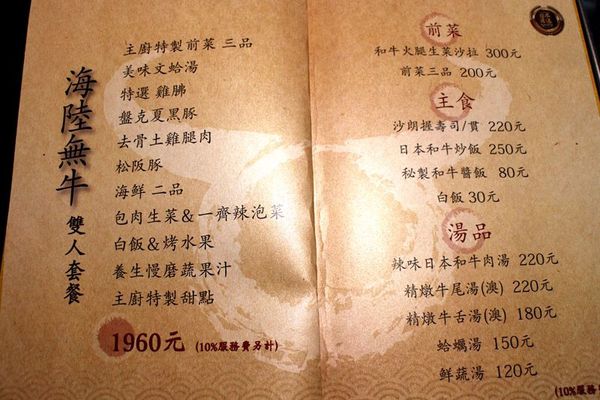 海陸無牛
雙人套餐
主廚特製前菜 三品
美味文蛤湯
特選 雞腿
盤克夏黑豚
去骨土雞腿肉
松阪豚
海鮮 二品
包肉生菜&一齊辣泡菜
白飯&烤水果
養生慢磨蔬果汁
主廚特製甜點
1960元 (10%服務費另計)
前菜
和牛火腿生菜沙拉 300元
前菜三品 200元
主食
沙朗握壽司/貫 220元
日本和牛炒飯 250元
秘製和牛醬飯 80元
白飯 30元
湯品
辣味日本和牛肉湯 220元
精燉牛尾湯(澳) 220元
精燉牛舌湯(澳) 180元
蛤蠣湯 150元
鮮蔬湯 120元
(10%服務